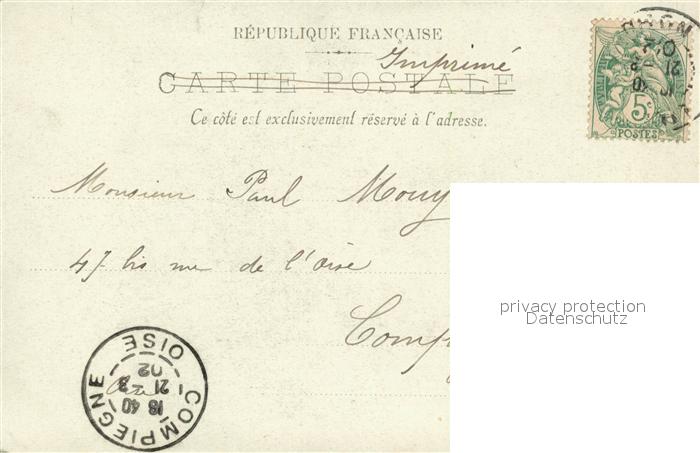 RÉPUBLIQUE FRANÇAISE
Imprimé
CARTE POSTALE
Ce côté est exclusivement réservé à l'adresse.
5c
POSTES
Monsieur Paul Mouy
47 bis rue de l'Oise
Comp
privacy protection
Datenschutz
COMPIEGNE OISE
18 40
21 - 3
02